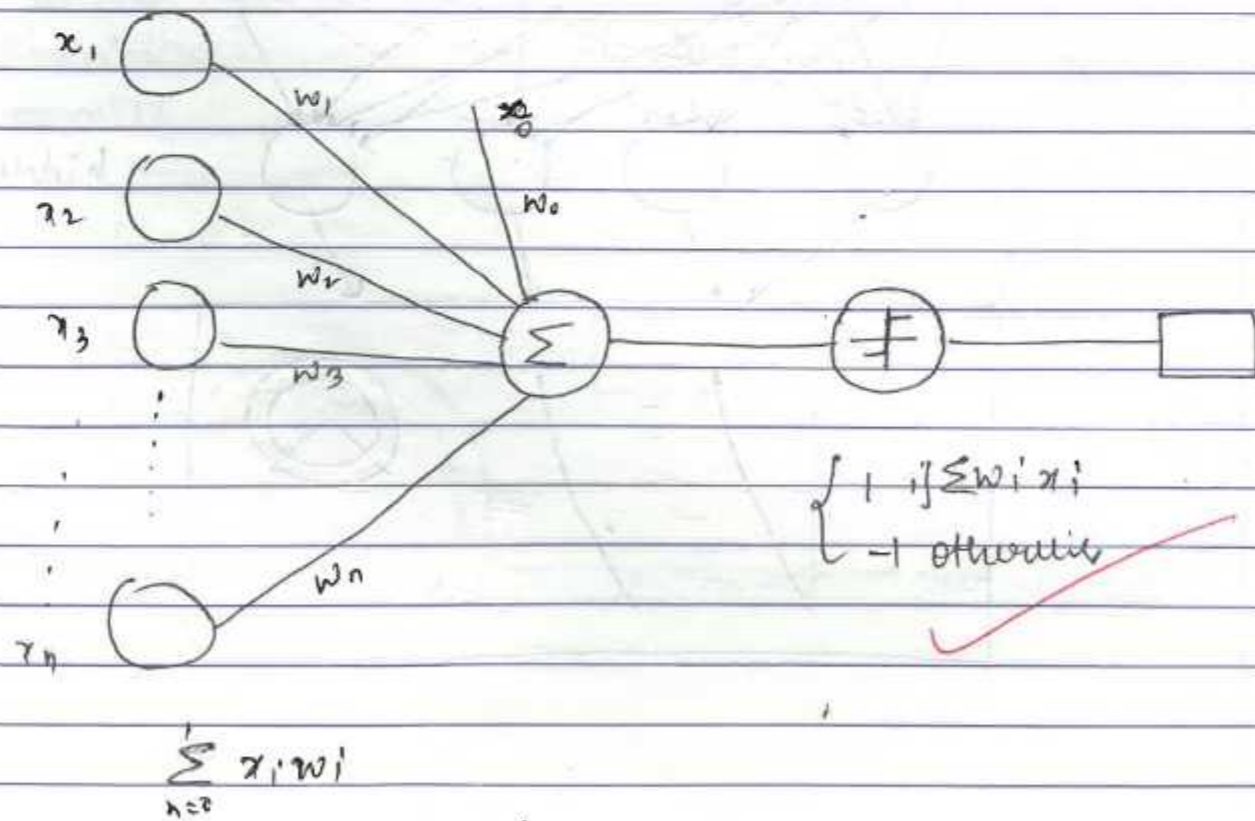 x₁
w₁
x₀
w₀
x₂
w₂
x₃
w₃
Σ
{ 1 if Σ wᵢ xᵢ
-1 otherwise
wₙ
xₙ
Σ xᵢ wᵢ